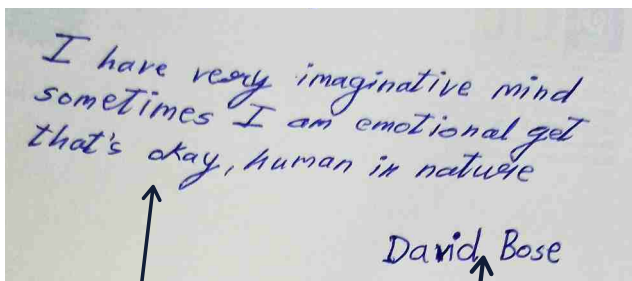 I have very imaginative mind
sometimes I am emotional get
that's okay, human in nature
David Bose